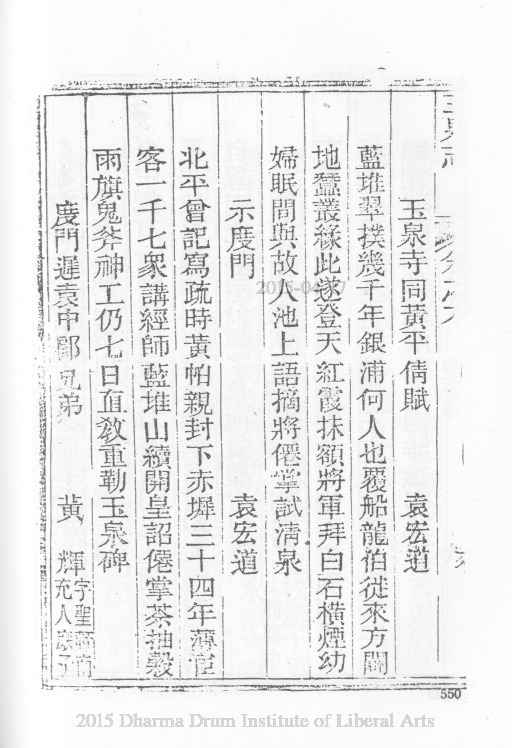 玉泉寺同黃平倩賦
袁宏道
藍堆翠撲幾千年銀浦何人也覆船龍伯徙來方闢
地蠶叢緣此遂登天紅霞抹額將軍拜白石橫煙幼
婦眠間與故人池上語摘將僊掌試清泉
示度門
袁宏道
北平曾記寫疏時黃帕親封下赤墀三十四年薄宦
客一千七衆講經師藍堆山續開皇詔僊掌茶抽穀
雨旗鬼斧神工仍七日直教重勒玉泉碑
度門遲袁中郎兄弟
黃輝
550
2015 Dharma Drum Institute of Liberal Arts